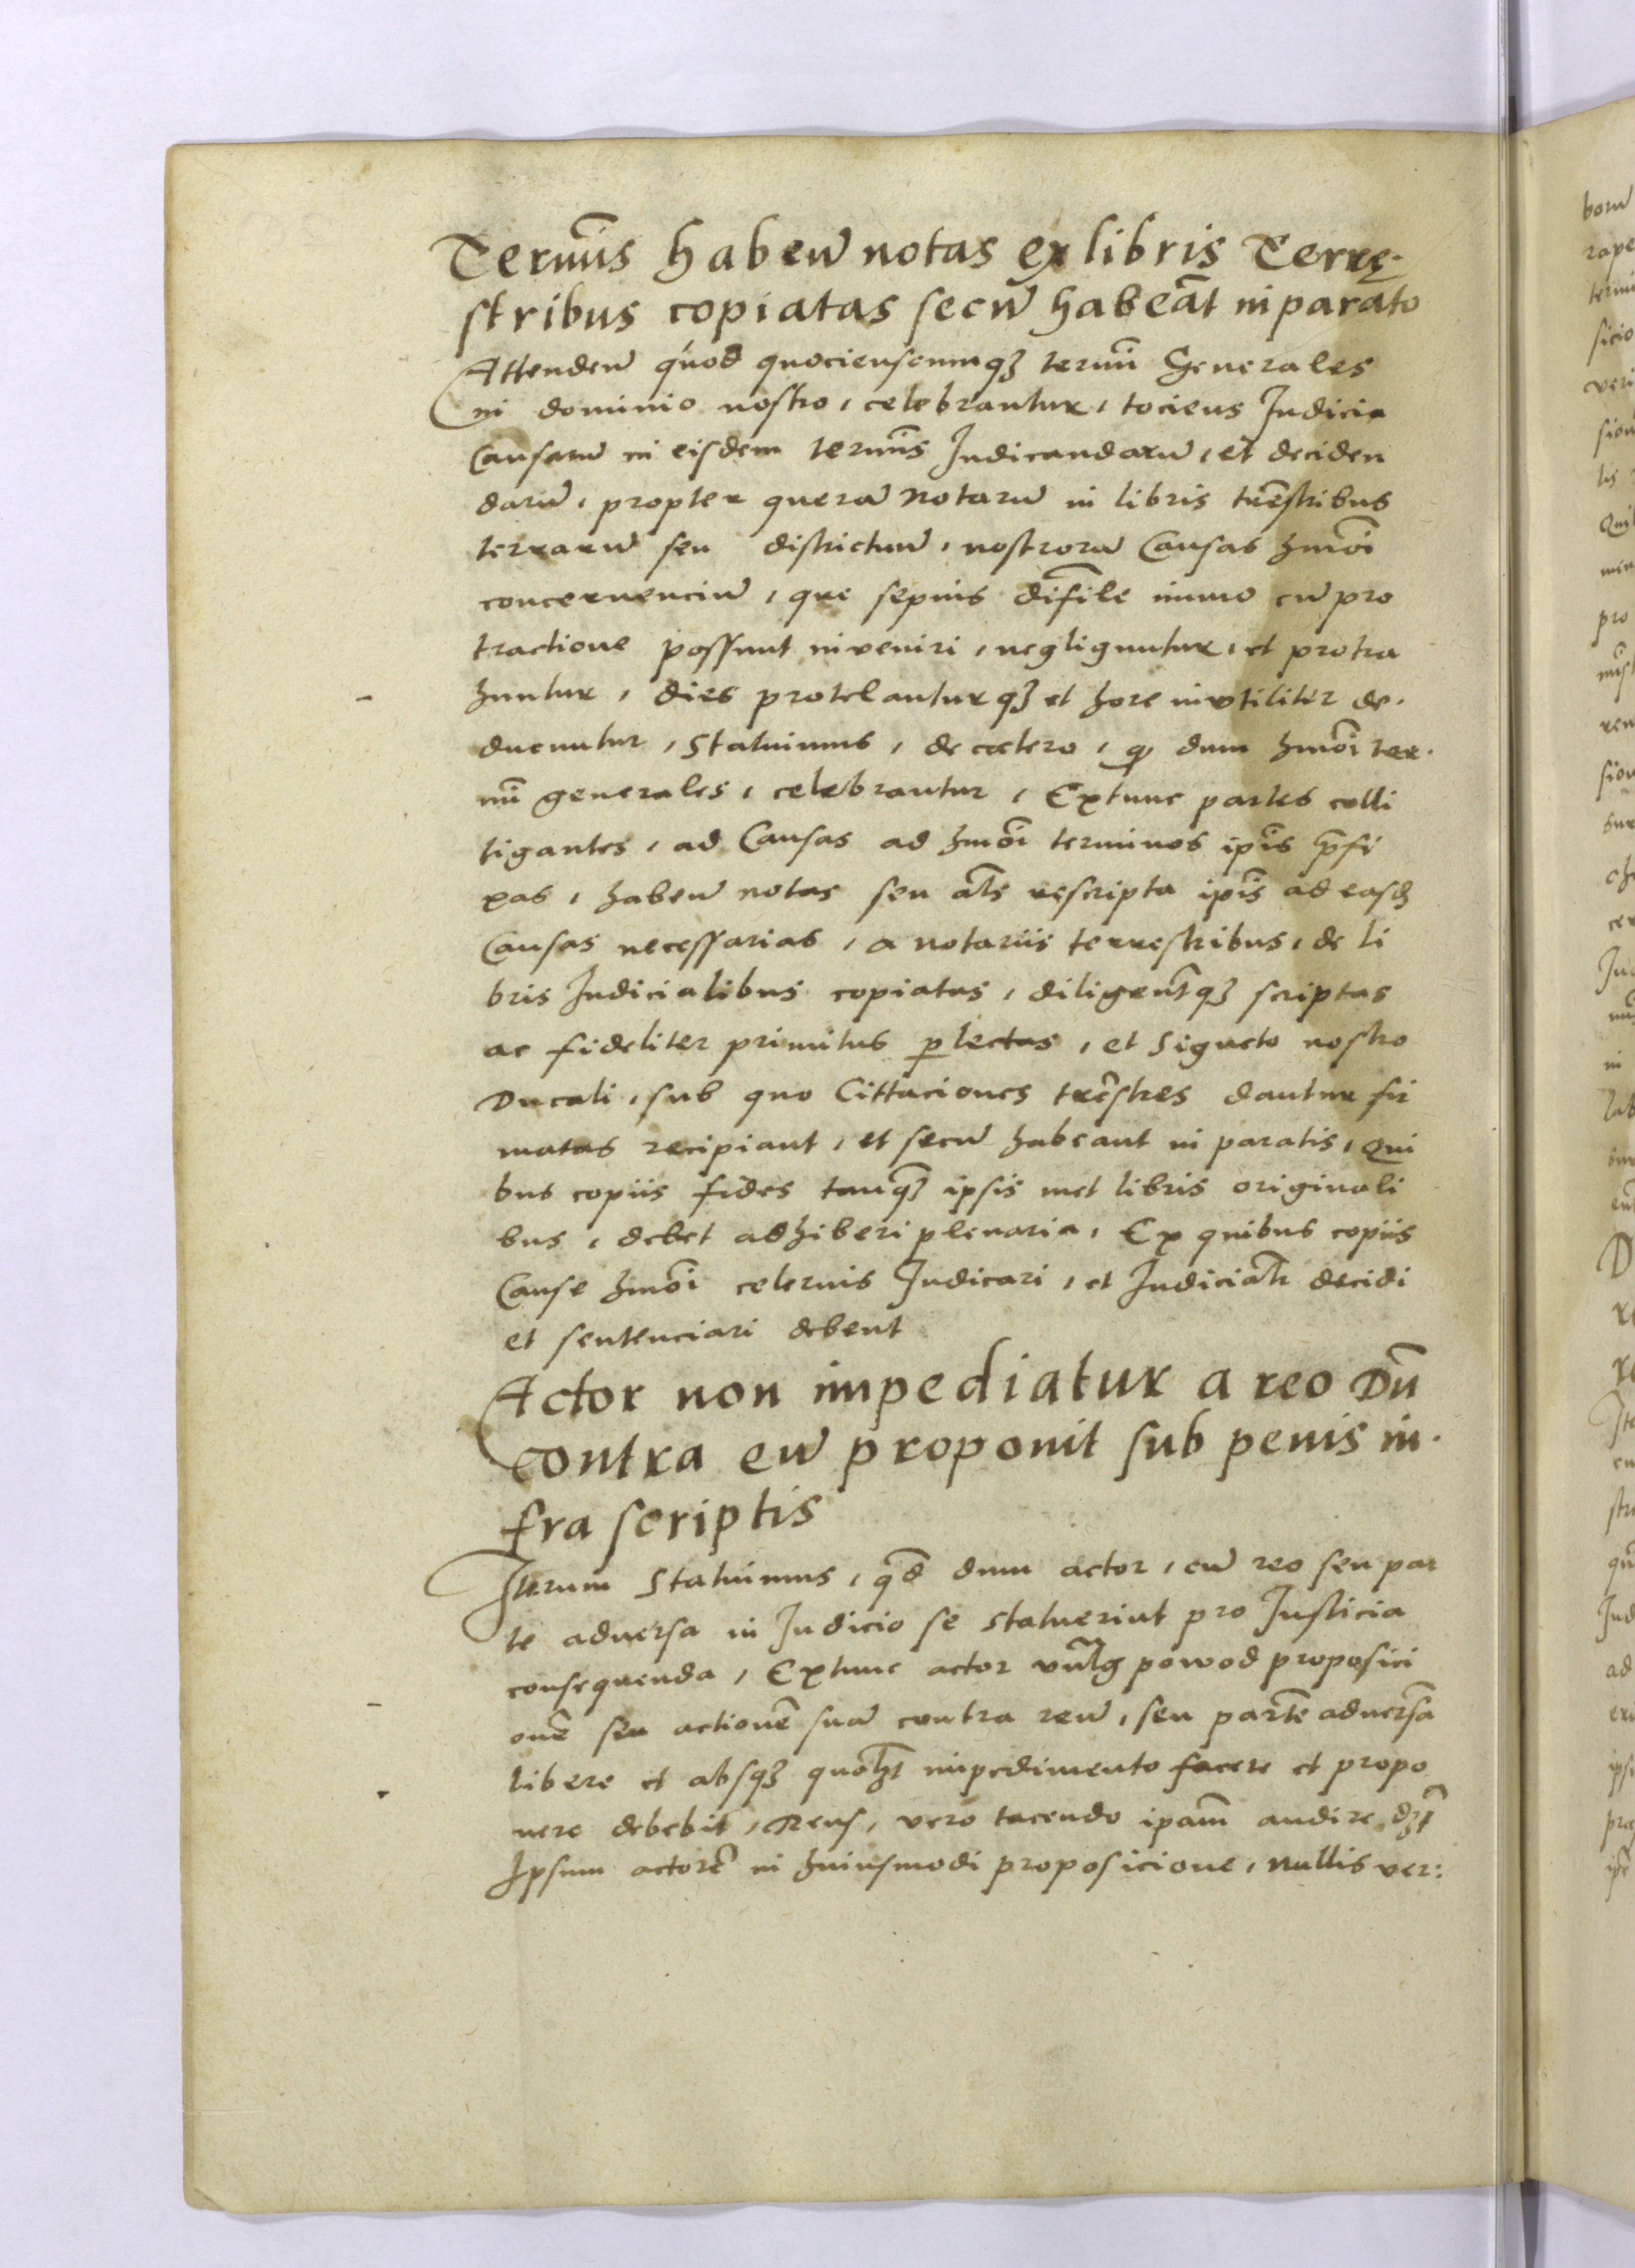 Termīs habeñ notas ex libris Terrę-
stribus copiatas secū habeāt in parato
Attendeñ quod quocienscumqȝ termī Generales
in dominio nostro, celebrantur, tociens Judicia
Causarū in eisdem termīs Judicandarū, et deciden
darū, propter querā notarū in libris trēstribus
terrarū seu districtuū, nostrorū Causas hmōi
concernenciū, que sepius difīcile immo cū pro
tractione possunt inveniri, negliguntur, et protra
huntur, dies protelantur qȝ et hore invtiliter de-
ducuntur, Statuimus, de cetero, qȝ dum hmōi ter-
mī generales, celebrantur, Extunc partes colli
tigantes, ad Causas ad hmōi terminos ip̄is p̄fi
xas, habeñ notas seu al̄s rescripta ip̄is ad easdȝ
Causas necessarias, a notariis terrestribus, de li
bris Judicialibus copiatas, diligent̄qȝ scriptas
ac fideliter primitus ꝑlectas, et Signeto nostro
Ducali, sub quo Cittaciones trēstres dantur fir
matas recipiant, et secū habeant in paratis, Qui
bus copiis fides tanqȝ ipsis met libris originali
bus, debet adhiberi plenaria, Ex quibus copiis
Cause hmōi celerius Judicari, et Judicial̄r decidi
et sentenciari debent
Actor non impediatur a reo Dū
contra eū proponit sub penis in-
fra scriptis
Iterum Statuimus, qd̄ dum actor, cū reo seu par
te adversa in Judicio se statuerint pro Justicia
consequenda, Extunc actor vulḡ powod proposici
onē seu actionē suā contra reū, seu partē adversā
libere et absqȝ quol̄ȝt impedimento facere et propo
nere debebit, Reus, vero tacendo ipam̄ audire dȝt̄
Ipsum actorē in huiusmodi proposicione, nullis ver: